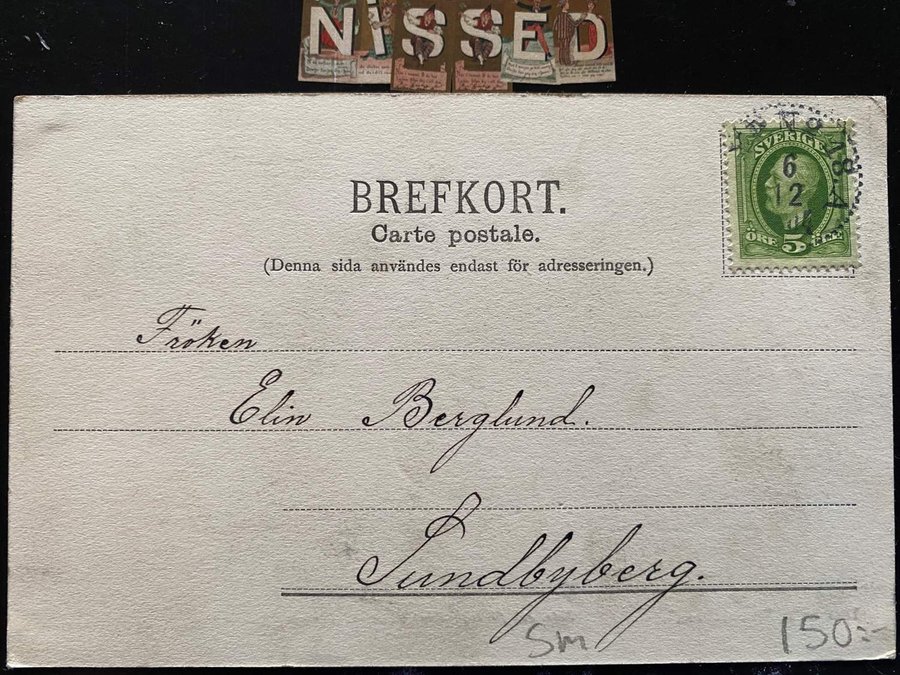 NISSED
BREFKORT.
Carte postale.
(Denna sida användes endast för adresseringen.)
SVERIGE
6
12
ÖRE 5
Fröken
Elin Berglund.
Sundbyberg.
Sm
150:-